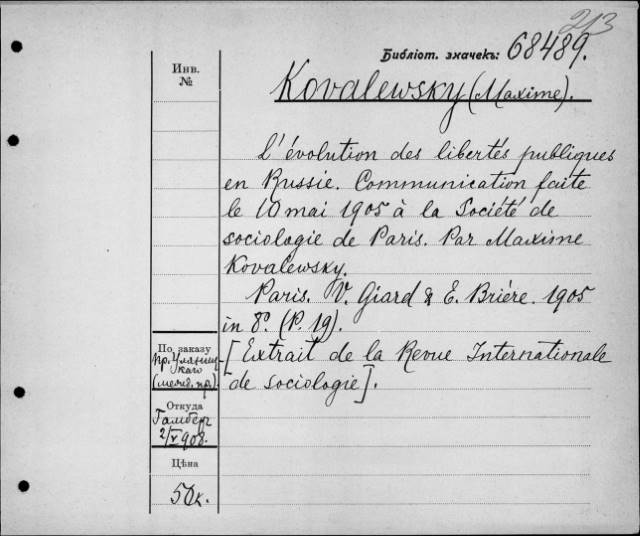 213
Библіот. значекъ: 68489.
Инв.
№
Kovalewsky (Maxime).
L'évolution des libertés publiques
en Russie. Communication faite
le 10 mai 1905 à la Société de
sociologie de Paris. Par Maxime
Kovalewsky.
Paris. V. Giard & E. Brière. 1905
in 8º. (P. 19).
[Extrait de la Revue Internationale
de sociologie].
По заказу
пр. Уляниц
каго
(межд. пр.)
Откуда
Гамбер
2/V 908.
Цѣна
50к.